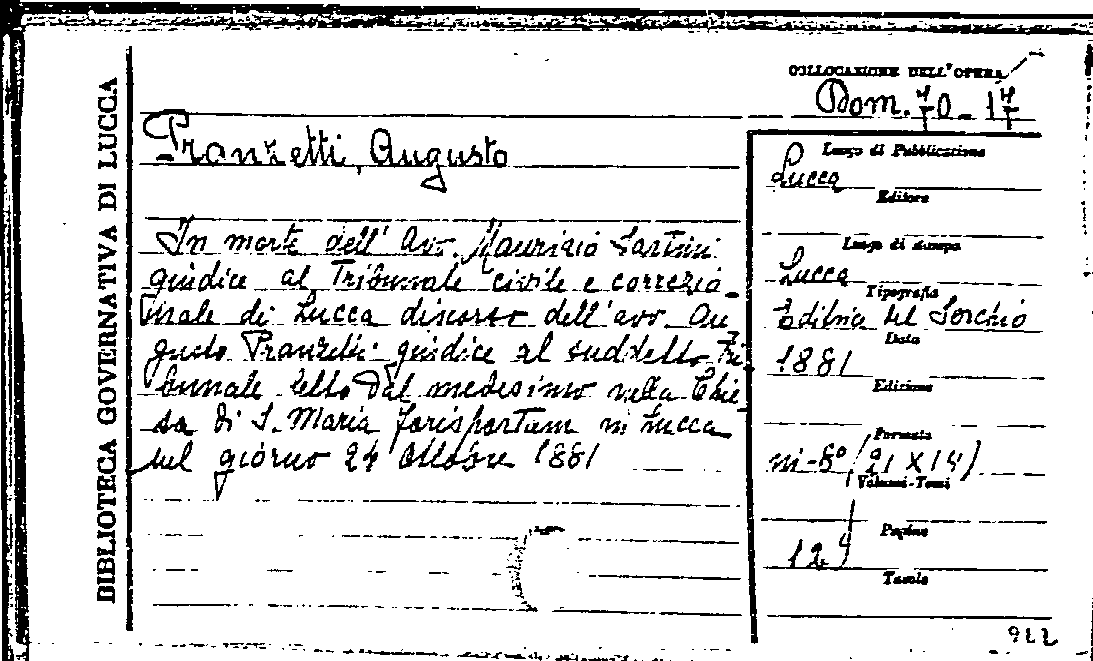 BIBLIOTECA GOVERNATIVA DI LUCCA
COLLOCAZIONE DELL'OPERA
Dom. 70 - 17
Pranzetti, Augusto
In morte dell' avv. Maurizio Sartini
giudice al Tribunale civile e correzio-
nale di Lucca discorso dell'avv. Au
gusto Pranzetti giudice al suddetto Tri
bunale letto dal medesimo nella Chie
sa di S. Maria forisportam in Lucca
nel giorno 24 Ottobre 1881
Luogo di Pubblicazione
Lucca
Editore
Luogo di stampa
Lucca
Tipografia
Editrice del Serchio
Data
1881
Edizione
Formato
in-8° (21 X 14)
Volumi-Tomi
Pagine
12
Tavole